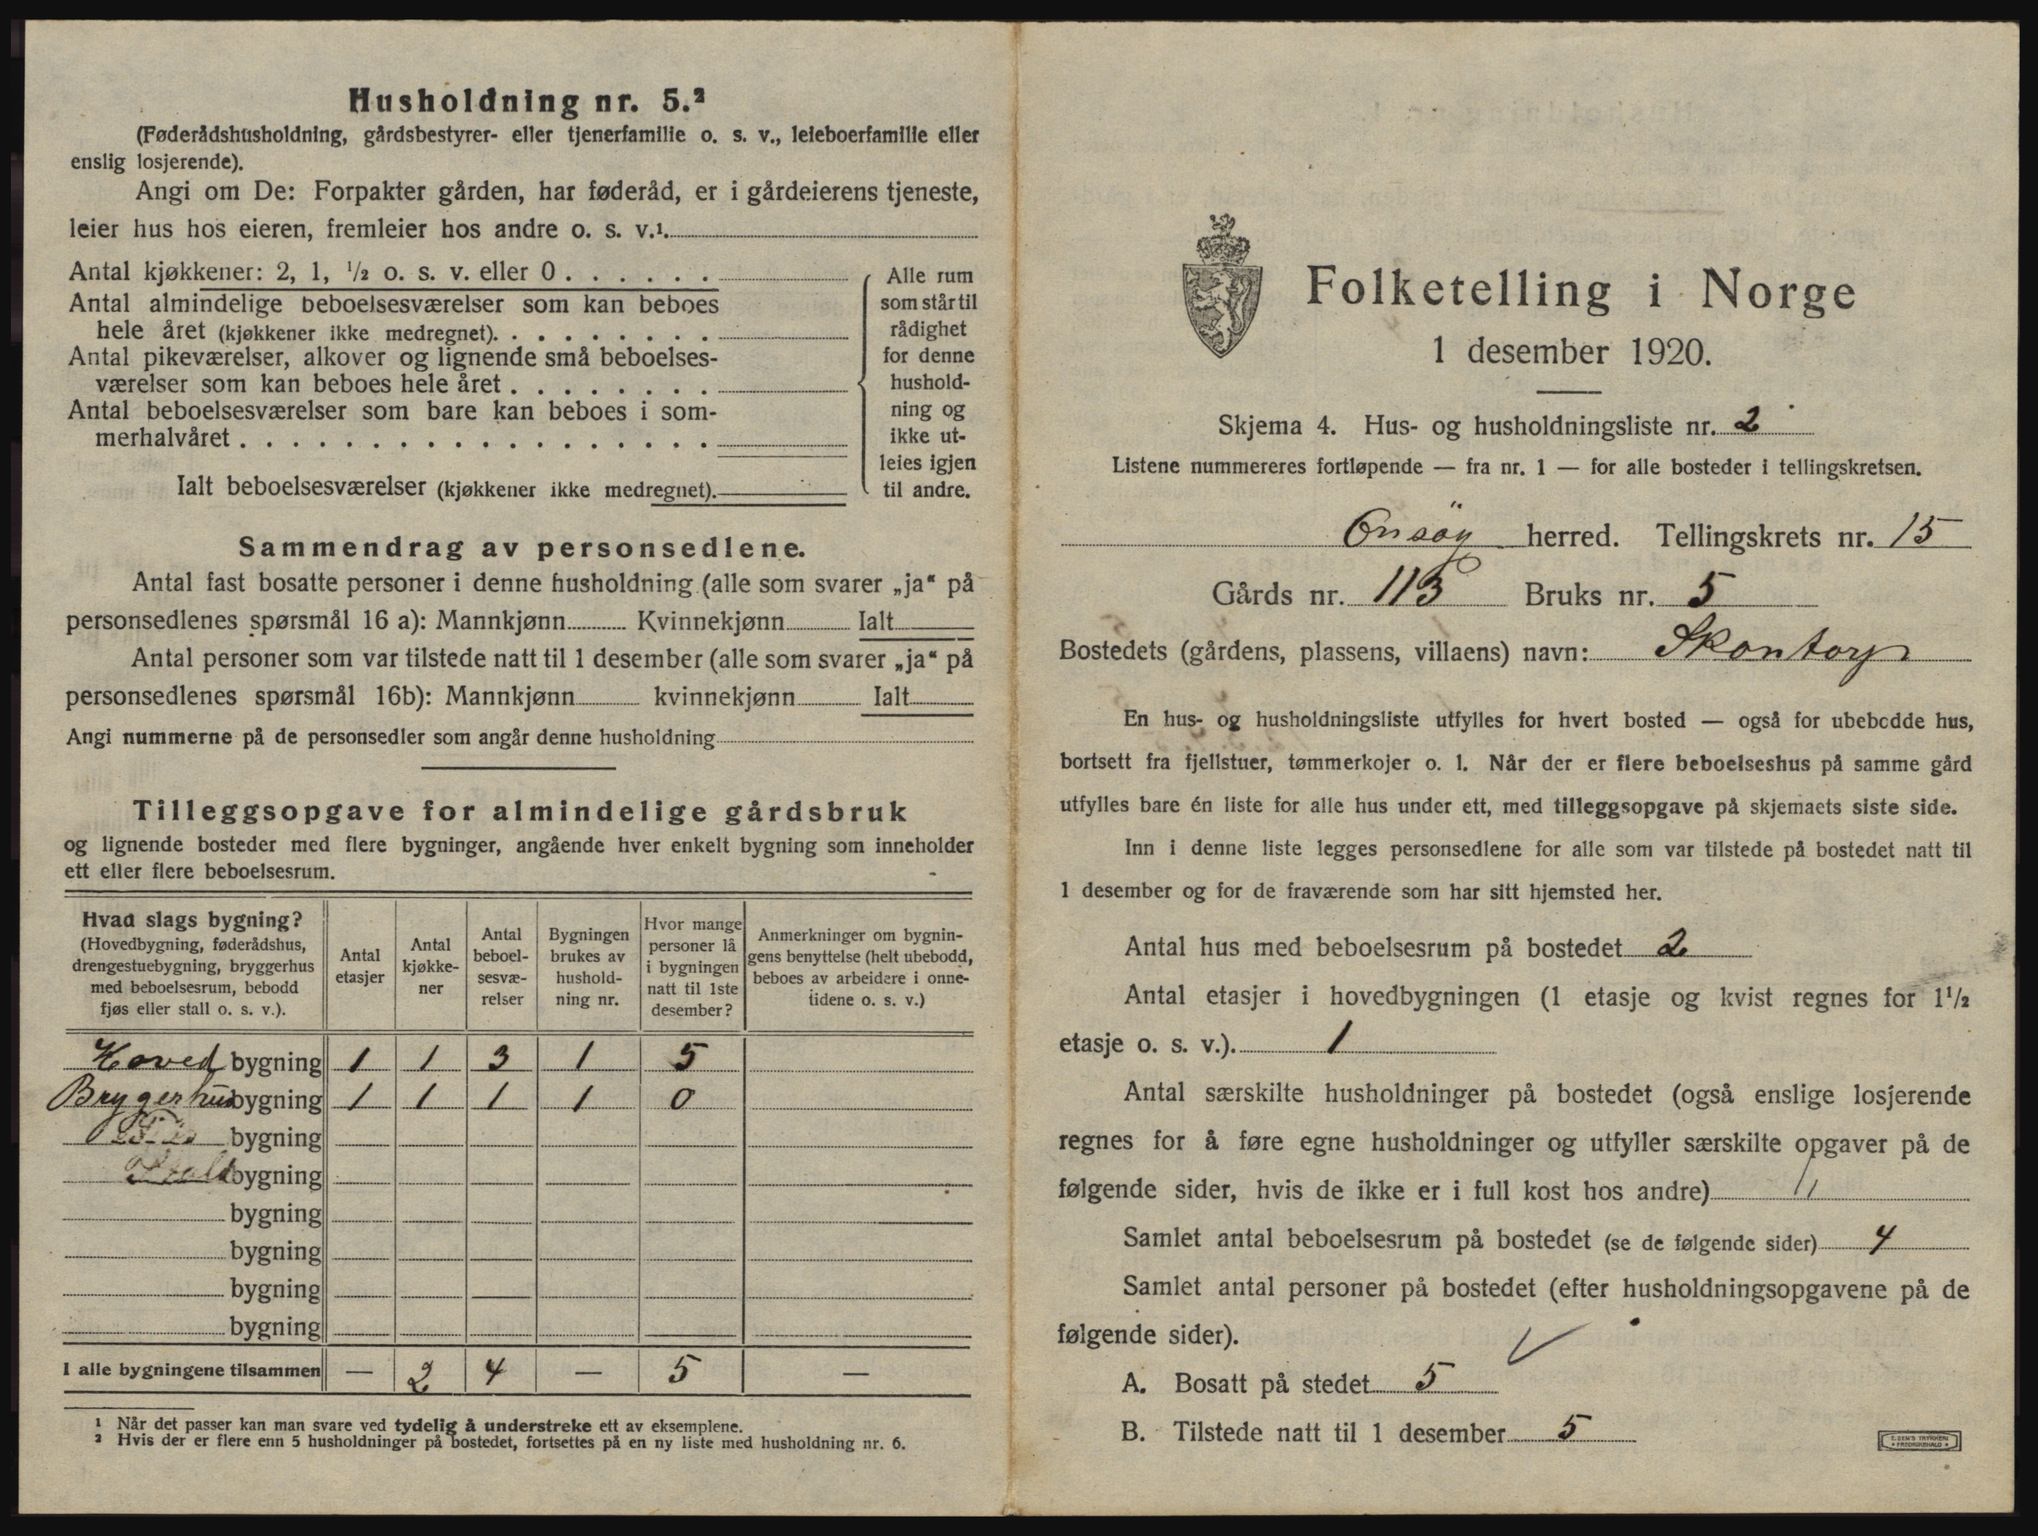 Husholdning nr. 5.²
(Føderådshusholdning, gårdsbestyrer- eller tjenerfamilie o. s. v., leieboerfamilie eller
enslig losjerende).
Angi om De: Forpakter gården, har føderåd, er i gårdeierens tjeneste,
leier hus hos eieren, fremleier hos andre o. s. v.¹
Antal kjøkkener: 2, 1, ½ o. s. v. eller 0 . . . . . .
Antal almindelige beboelsesværelser som kan beboes
hele året (kjøkkener ikke medregnet). . . . . . . . .
Antal pikeværelser, alkover og lignende små beboelses-
værelser som kan beboes hele året . . . . . . . .
Antal beboelsesværelser som bare kan beboes i som-
merhalvåret . . . . . . . . . . . . . . . . . .
Ialt beboelsesværelser (kjøkkener ikke medregnet).
Alle rum
som står til
rådighet
for denne
hushold-
ning og
ikke ut-
leies igjen
til andre.
Sammendrag av personsedlene.
Antal fast bosatte personer i denne husholdning (alle som svarer „ja“ på
personsedlenes spørsmål 16 a): Mannkjønn Kvinnekjønn Ialt
Antal personer som var tilstede natt til 1 desember (alle som svarer „ja“ på
personsedlenes spørsmål 16b): Mannkjønn kvinnekjønn Ialt
Angi nummerne på de personsedler som angår denne husholdning
Tilleggsopgave for almindelige gårdsbruk
og lignende bosteder med flere bygninger, angående hver enkelt bygning som inneholder
ett eller flere beboelsesrum.
Hvad slags bygning?
(Hovedbygning, føderådshus,
drengestuebygning, bryggerhus
med beboelsesrum, bebodd
fjøs eller stall o. s. v.).
Antal
etasjer
Antal
kjøkke-
ner
Antal
beboel-
sesvæ-
relser
Bygningen
brukes av
hushold-
ning nr.
Hvor mange
personer lå
i bygningen
natt til 1ste
desember?
Anmerkninger om bygnin-
gens benyttelse (helt ubebodd,
beboes av arbeidere i onne-
tidene o. s. v.)
Hoved bygning 1 1 3 1 5
Brygerhus bygning 1 1 1 1 0
bygning
Stald bygning
bygning
bygning
bygning
bygning
I alle bygningene tilsammen — 2 4 — 5 —
¹ Når det passer kan man svare ved tydelig å understreke ett av eksemplene.
² Hvis der er flere enn 5 husholdninger på bostedet, fortsettes på en ny liste med husholdning nr. 6.
Folketelling i Norge
1 desember 1920.
Skjema 4. Hus- og husholdningsliste nr. 2
Listene nummereres fortløpende — fra nr. 1 — for alle bosteder i tellingskretsen.
Onsöy herred. Tellingskrets nr. 15
Gårds nr. 113 Bruks nr. 5
Bostedets (gårdens, plassens, villaens) navn: Skontorp
En hus- og husholdningsliste utfylles for hvert bosted — også for ubebodde hus,
bortsett fra fjellstuer, tømmerkojer o. l. Når der er flere beboelseshus på samme gård
utfylles bare én liste for alle hus under ett, med tilleggsopgave på skjemaets siste side.
Inn i denne liste legges personsedlene for alle som var tilstede på bostedet natt til
1 desember og for de fraværende som har sitt hjemsted her.
Antal hus med beboelsesrum på bostedet 2
Antal etasjer i hovedbygningen (1 etasje og kvist regnes for 1½
etasje o. s. v.). 1
Antal særskilte husholdninger på bostedet (også enslige losjerende
regnes for å føre egne husholdninger og utfyller særskilte opgaver på de
følgende sider, hvis de ikke er i full kost hos andre) 1
Samlet antal beboelsesrum på bostedet (se de følgende sider) 4
Samlet antal personer på bostedet (efter husholdningsopgavene på de
følgende sider).
A. Bosatt på stedet 5
B. Tilstede natt til 1 desember 5